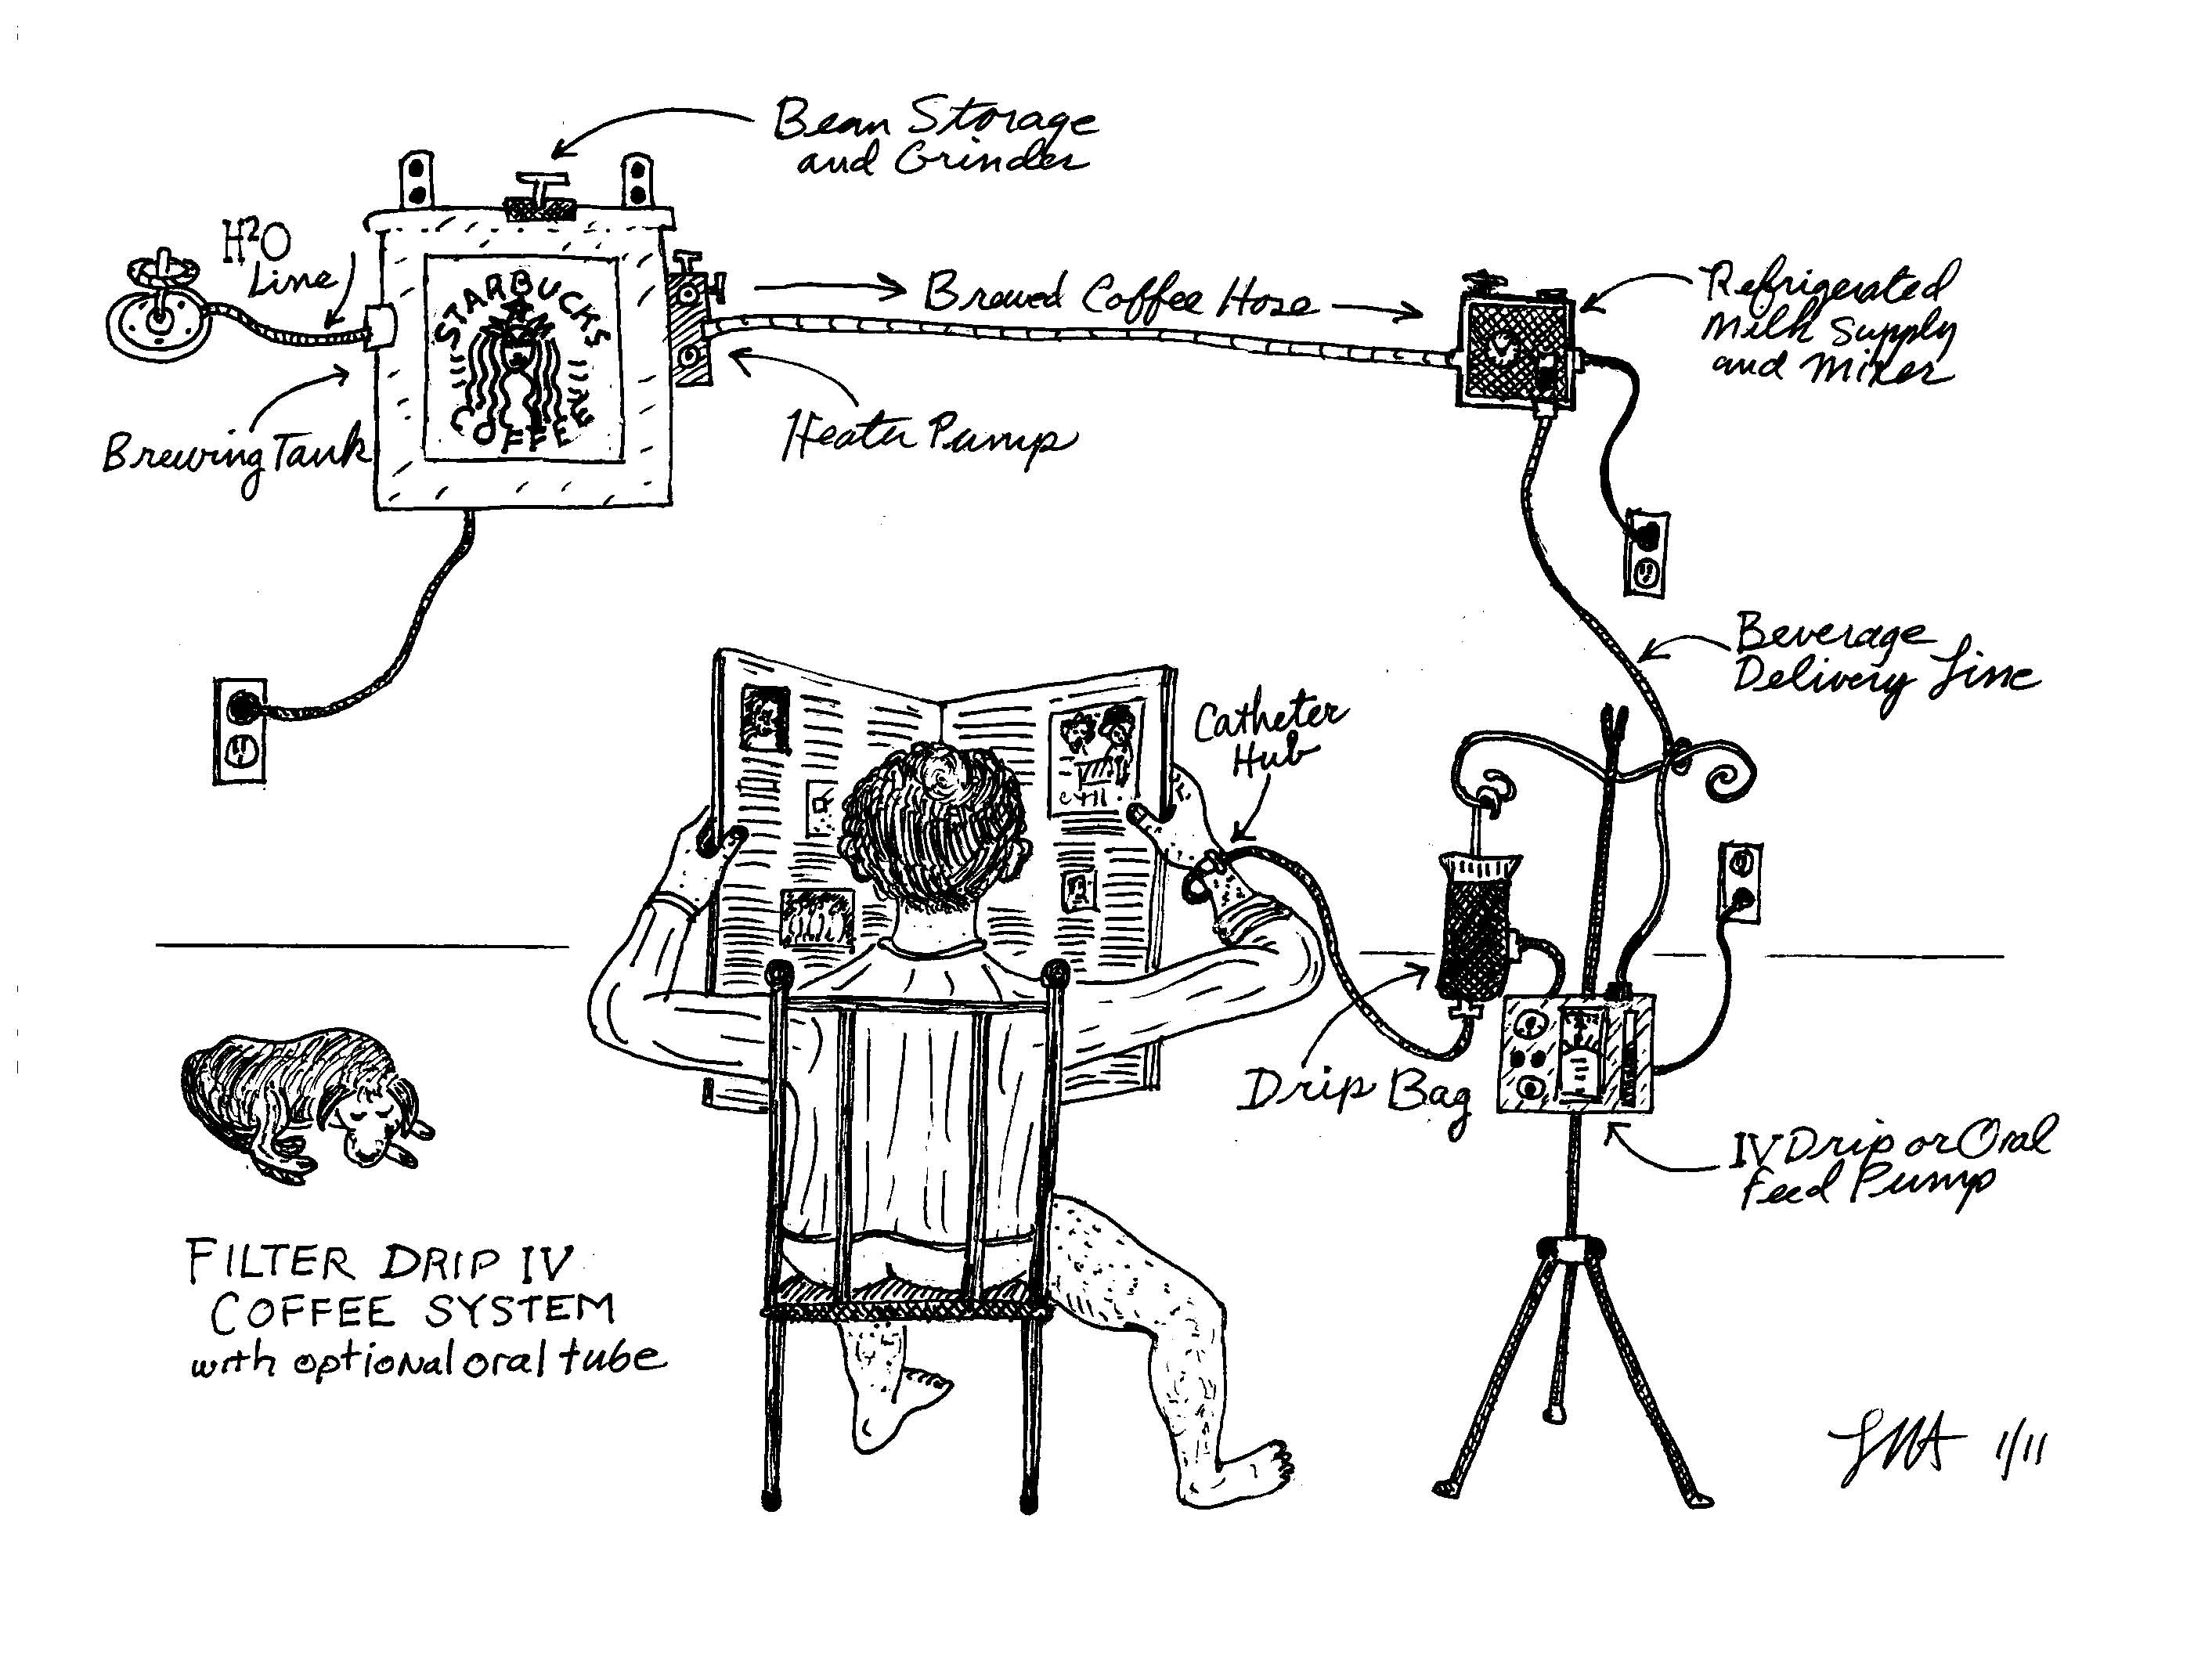 Bean Storage
and Grinder
H²O
Line
STARBUCKS
COFFEE
Brewed Coffee Hose
Refrigerated
Milk Supply
and Mixer
Brewing Tank
Heater Pump
Beverage
Delivery Line
Catheter
Hub
Drip Bag
IV Drip or Oral
Feed Pump
FILTER DRIP IV
COFFEE SYSTEM
with optional oral tube
1/11